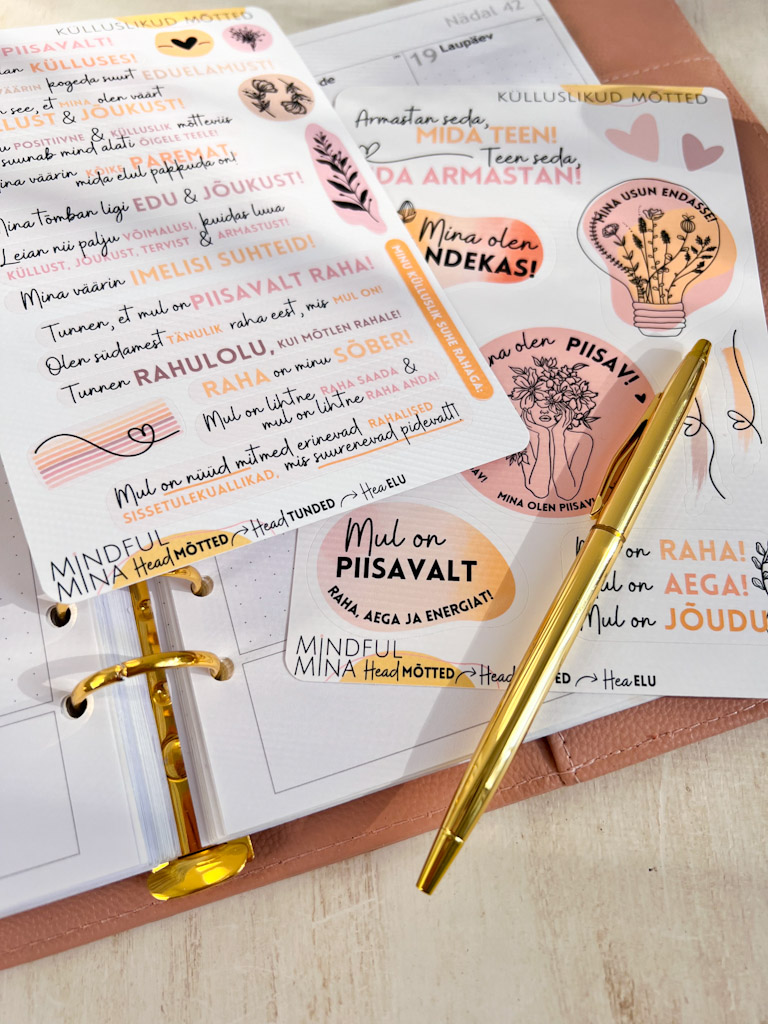 KÜLLUSLIKUD MÕTTED
PIISAVALT!
KÜLLUSES!
VÄÄRIN kogeda suurt EDUELAMUST!
see, et MINA olen väärt
& JÕUKUST!
POSITIIVNE & KÜLLUSLIK mõtteviis
suunab mind alati ÕIGELE TEELE!
väärin KÕIKE PAREMAT,
mida elul pakkuda on!
Mina tõmban ligi EDU & JÕUKUST!
Leian nii palju VÕIMALUSI, kuidas luua
KÜLLUST, JÕUKUST, TERVIST & ARMASTUST!
Mina väärin IMELISI SUHTEID!
Tunnen, et mul on PIISAVALT RAHA!
Olen südamest TÄNULIK raha eest, mis MUL ON!
Tunnen RAHULOLU, KUI MÕTLEN RAHALE!
RAHA on minu SÕBER!
Mul on lihtne RAHA SAADA &
mul on lihtne RAHA ANDA!
Mul on nüüd mitmed erinevad RAHALISED
SISSETULEKUALLIKAD, mis suurenevad pidevalt!
MINU KÜLLUSLIK SUHE RAHAGA:
MINDFUL
MINA Head MÕTTED Head TUNDED Hea ELU
Nädal 42
19 Laupäev
KÜLLUSLIKUD MÕTTED
Armastan seda,
MIDA TEEN!
Teen seda,
ARMASTAN!
Mina olen
MINA USUN ENDASSE!
olen PIISAV!
MINA OLEN
Mul on
PIISAVALT
RAHA, AEGA JA ENERGIAT!
on RAHA!
on AEGA!
Mul on JÕUDU
MINDFUL
MINA Head MÕTTED Head Hea ELU